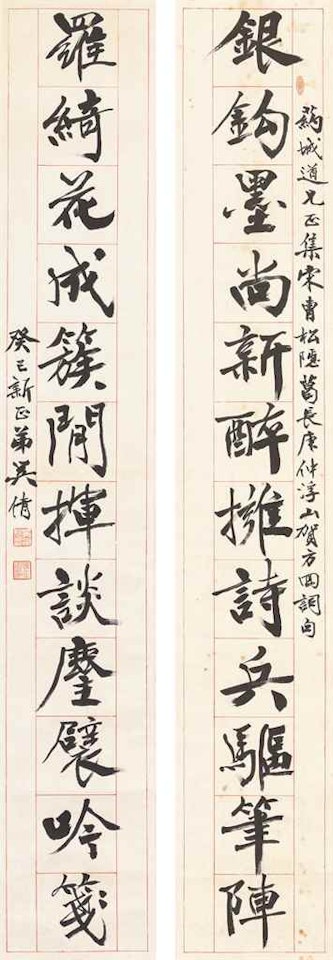 葯城道兄正集宋曹松隱葛長庚仲浮山賀方回詞句
銀鈎墨尚新醉擁詩兵驅筆陣
羅綺花成簇閒揮談麈襞吟箋
癸巳新正弟吳倩